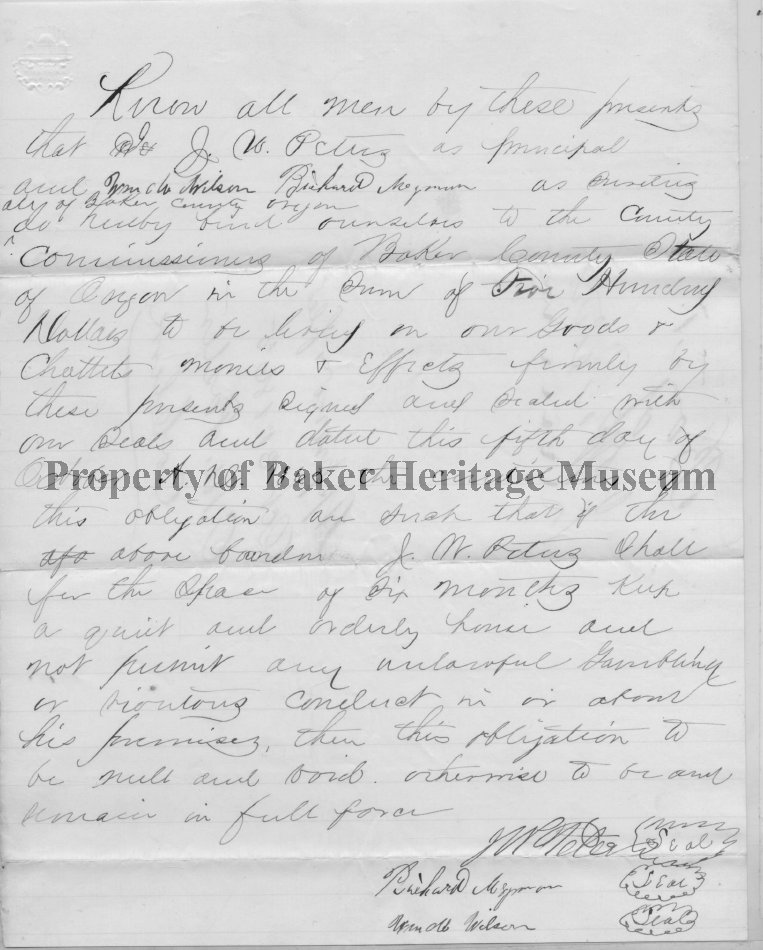 Know all men by these presents
that I J. W. Peters as principal
and Wilson Richard Moynan as
all of Baker County Oregon
do hereby bind ourselves to the County
Commissioners of Baker County State
of Oregon in the Sum of Hundred
Dollars to be on our Goods &
Chattels monies & Effects firmly by
these presents signed and sealed with
our seals and dated this fifth day of
A.D.
Property of Baker Heritage Museum
this obligation are such that if the
above bounden J. W. Peters Shall
for the Space of Six months Keep
a quiet and orderly house and
not permit any unlawful Gambling
or riotous conduct in or about
his premises, then this obligation to
be null and void. otherwise to be and
remain in full force
J W Peters Seal
Richard Moynan Seal
Wilson Seal